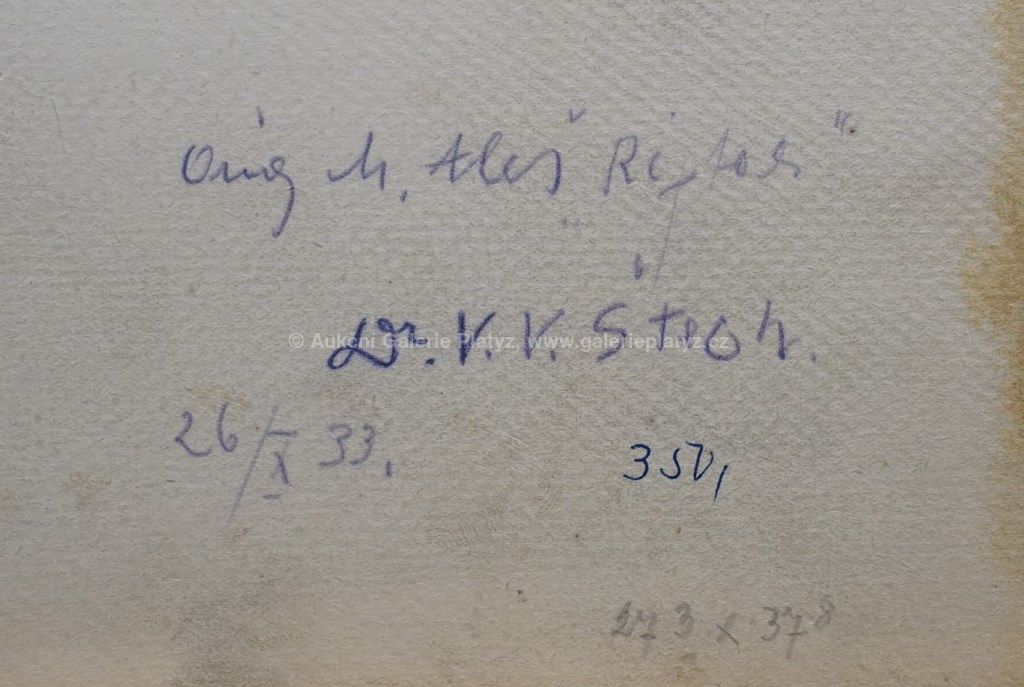 Orig M. Aleš
Dr. V. V. Štech.
© Aukční Galerie Platyz, www.galerieplatyz.cz
26/X 33.
350,
27 3 x 37 8